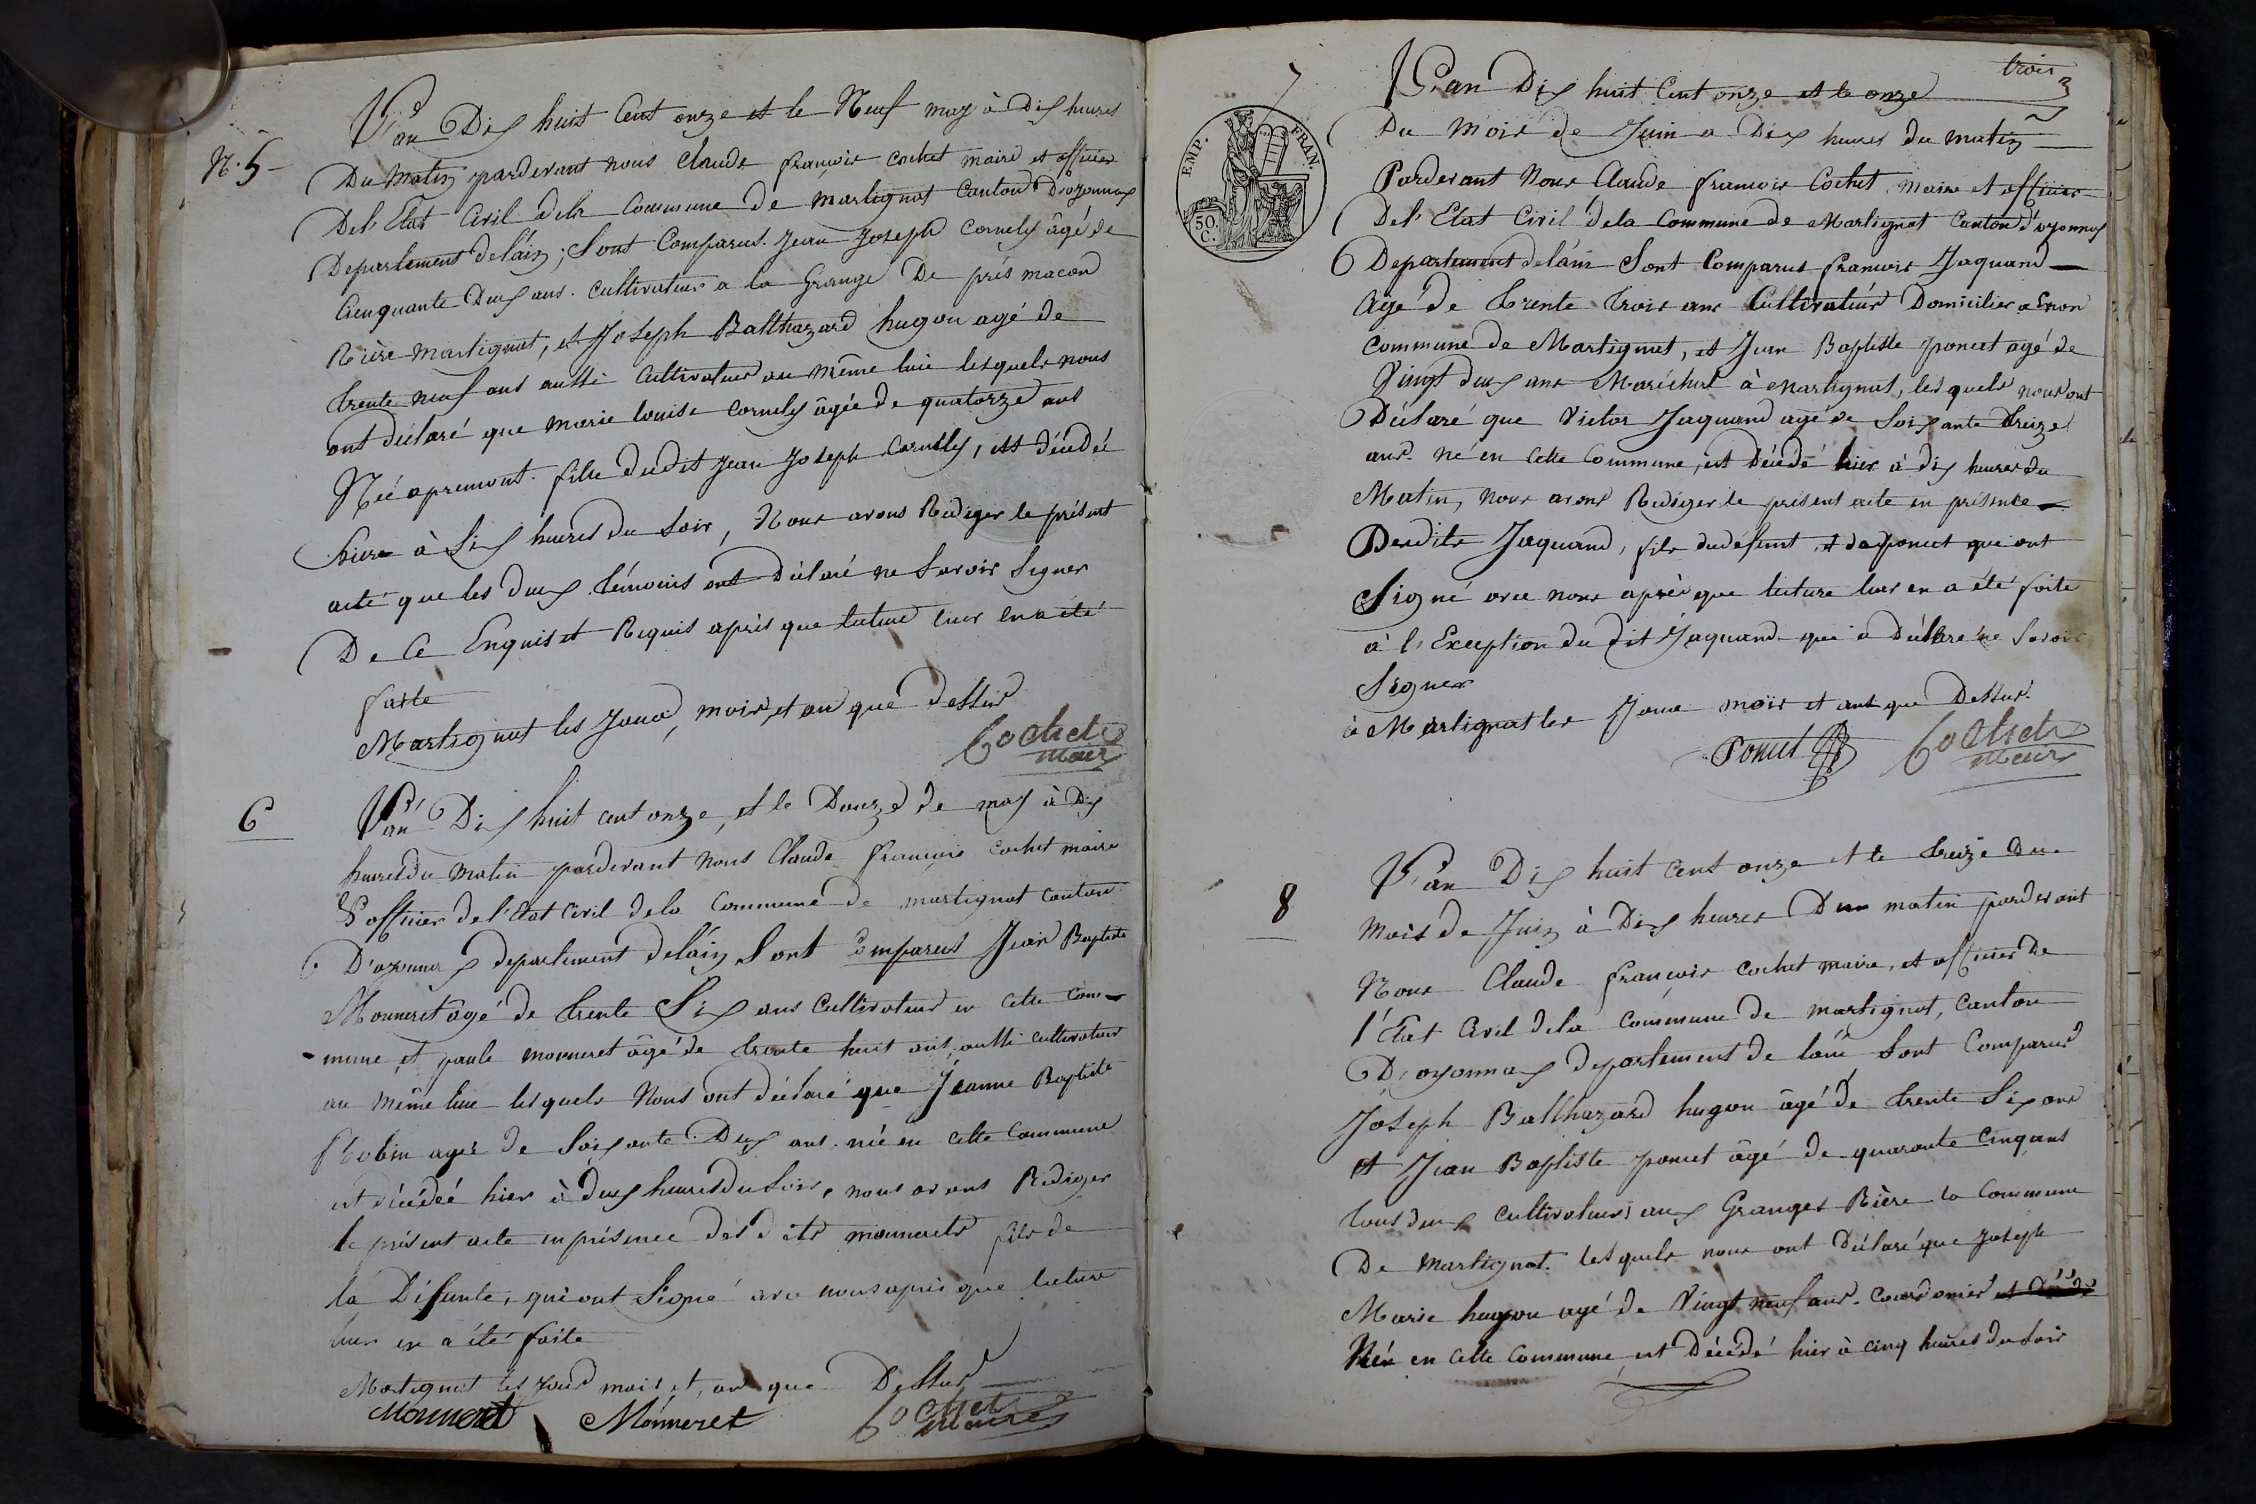 N.5
L'an Dix huit Cent onze et le Neuf may à Dix heures
Du Matin pardevant nous Claude françois cochet maire et officier
De l'Etat Civil dela Commune de martignat Canton D'oyonnax
Departement del'ain ; Sont Comparus Jean Joseph Cornely âgé de
Cinquante Deux ans. Cultivateur a la Grange De prés macon
Rière Martignat, et Joseph Balthazard hugon agé de
trente neuf ans aussi Cultivateur au même lieu lesquels nous
ont déclaré que marie louise Cornely âgée de quatorze ans
Née apremont. fille dudit Jean Joseph Cornely, est décedée
hiere à Six heures du Soir, Nous avons Rediger le présent
acte que les deux témoins ont Déclaré ne Savoir Signer
De Ce Enquis et Requis après que lecture leur en a été
faite
Martignat les Jour, mois, et an que dessus
Cochet
maire
6
L'an Dix huit cent onze, et le Douze de may à Dix
heures du Matin pardevant Nous Claude françois cochet maire
& officier de l'Etat Civil dela Commune de martignat canton
D'oyonnax departement delain Sont Comparus Jean Baptiste
Monneret âgé de trente Six ans Cultivateur en cette Com-
mune, et paule monneret âgé de trente huit ans, aussi cultivateur
au même lieu lesquels Nous ont déclaré que Jeanne Baptiste
Robin agée de Soixante Deux ans. née en cette Commune
est décédeé hier à deux heures du Soir, nous avons Rediger
le présent acte en présence des dits monnerets fils de
la Défunte, qui ont Signé avec nous après que lecture
leur en a été faite
Martignat les jour mois et, an que Dessus
Monneret Monneret Cochet
Maire
trois
3
7
EMP. FRAN.
50.
C.
L'an Dix huit Cent onze et le onze
Du Mois de Juin a Dix heures du matin
Pardevant Nous Claude françois Cochet maire et officier
Del'Etat Civil dela Commune de Martignat Canton d'oyonnax
Departement delain Sont Comparus françois Jaquand
Agé de trente trois ans Cultivateur Domicilier a Enon
Commune de Martignat, et Jean Baptiste poncet agé de
Vingt deux ans Maréchal à Martignat, les quels nous ont
Déclaré que Victor Jaquand agé de Soixante treize
ans. né en Cette Commune, est Décedé hier à dix heures du
Matin, Nous avons Rediger le présent acte en présence
Desdits Jaquand, fils du défunt, et de poncet qui ont
Signé avec nous après que lecture leur en a été faite
à l'Exception du dit Jaquand qui a Déclaré ne Savoir
Signer
à Martignat les Jour mois et ans que Dessus.
Poncet Cochet
Maire
8
L'an Dix huit cent onze et le treize du
Mois de Juin à Dix heures Du matin pardevant
Nous Claude françois cochet maire, et officier de
l'Etat Civil dela commune de martignat, canton
D'oyonnax departement de lain Sont Comparus
Joseph Balthazard hugon âgé de trente Six ans
et Jean Baptiste poncet âgé de quarante cinq ans
tous deux cultivateurs aux Granges Rière la Commune
De Martignat. lesquels nous ont Déclaré que Joseph
Marie hugon agé de Vingt neuf ans. Cordonier et Décédé
Née en cette Commune, est Décédé hier à cinq heures du Soir